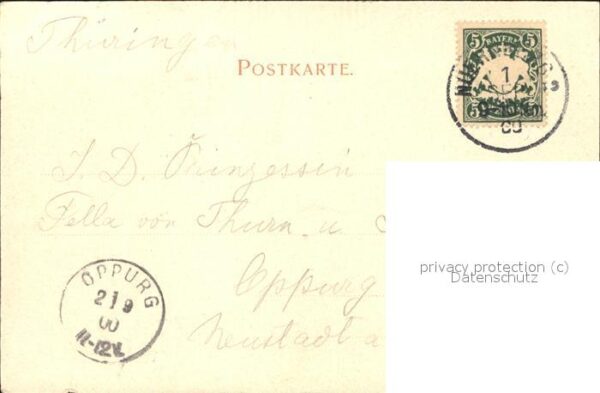 Thüringen
POSTKARTE.
5 BAYERN 5
NÜRNBERG
1
SEP
00
J. D. Prinzessin
Fella von Thurn u
Oppurg
Neustadt a
OPPURG
2 1 9
00
11-12 V.
privacy protection (c)
Datenschutz